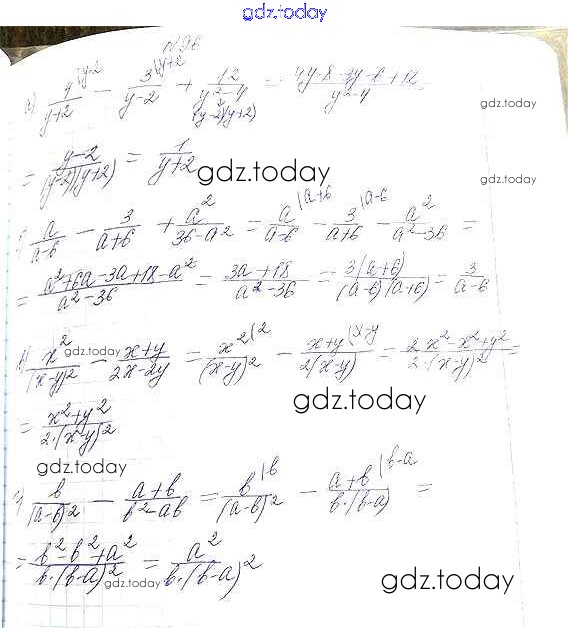 gdz.today
№96
а) y/(y+2) |y-2 - 3/(y-2) |y+2 + 12/(y²-4) = (4y-8-3y-6+12)/(y²-4)
(y-2)(y+2)
gdz.today
= (y-2)/((y-2)(y+2)) = 1/(y+2)
gdz.today
gdz.today
a/(a-6) - 3/(a+6) + a²/(36-a²) = a/(a-6) |a+6 - 3/(a+6) |a-6 - a²/(a²-36) =
= (a²+6a-3a+18-a²)/(a²-36) = (3a+18)/(a²-36) = 3(a+6)/((a-6)(a+6)) = 3/(a-6)
x²/(x-y)² - (x+y)/(2x-2y) = x²/(x-y)² |2 - (x+y)/(2(x-y)) |x-y = (2x²-x²+y²)/(2·(x-y)²) =
gdz.today
= (x²+y²)/(2·(x-y)²)
gdz.today
gdz.today
г) b/(a-b)² - (a+b)/(b²-ab) = b/(a-b)² |b - (a+b)/(b·(b-a)) |b-a =
= (b²-b²+a²)/(b·(b-a)²) = a²/(b·(b-a)²)
gdz.today
gdz.today